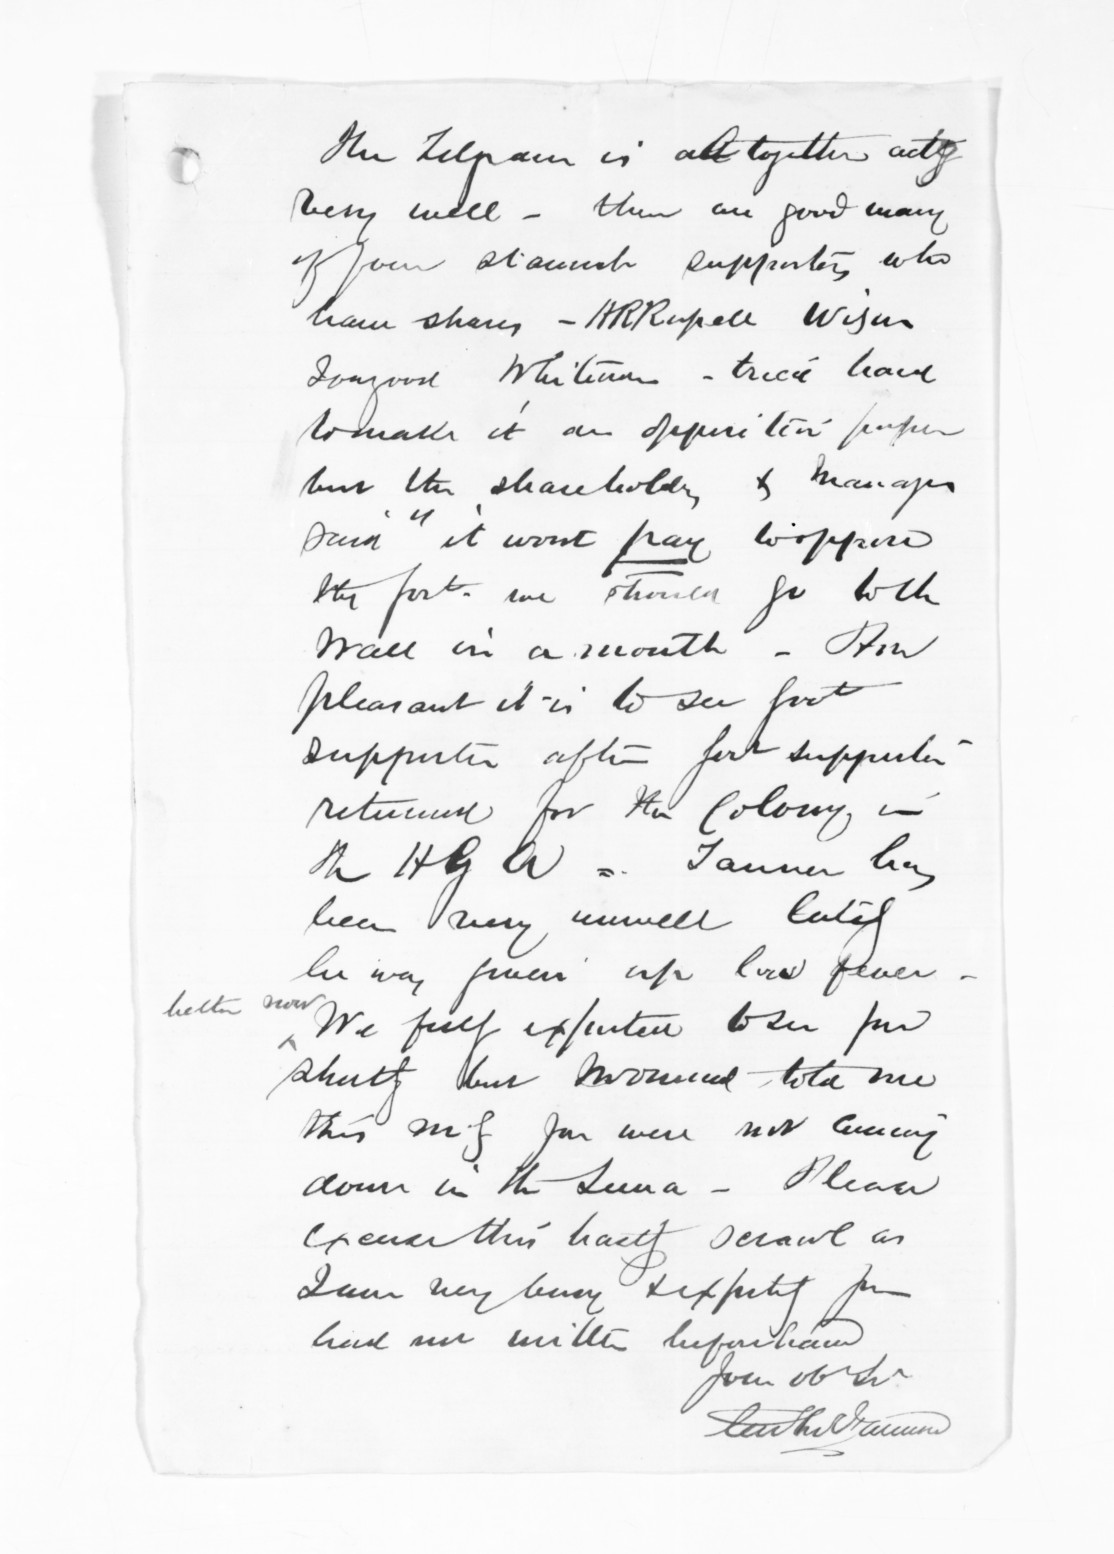 The Telegram is altogether actg
very well - there are good many
of your staunch supporters who
have shares - HR Russell Wilson
Whiteman - tried hard
to make it an opposition paper
but the shareholders & Manager
said "it wont pay to oppose
the Govt. we should go to the
Wall in a month - How
pleasant it is to see Govt
supporter after Govt supporter
returned for the Colony in
the H G A -. Tanner has
been very unwell lately
he was given up low fever -
better now
We fully expected to see you
shortly but Ormond told me
this mg you were not coming
down in the Luna - Please
excuse this hasty scrawl as
I am very busy & expectg you
had not written beforehand
Your ob Sr